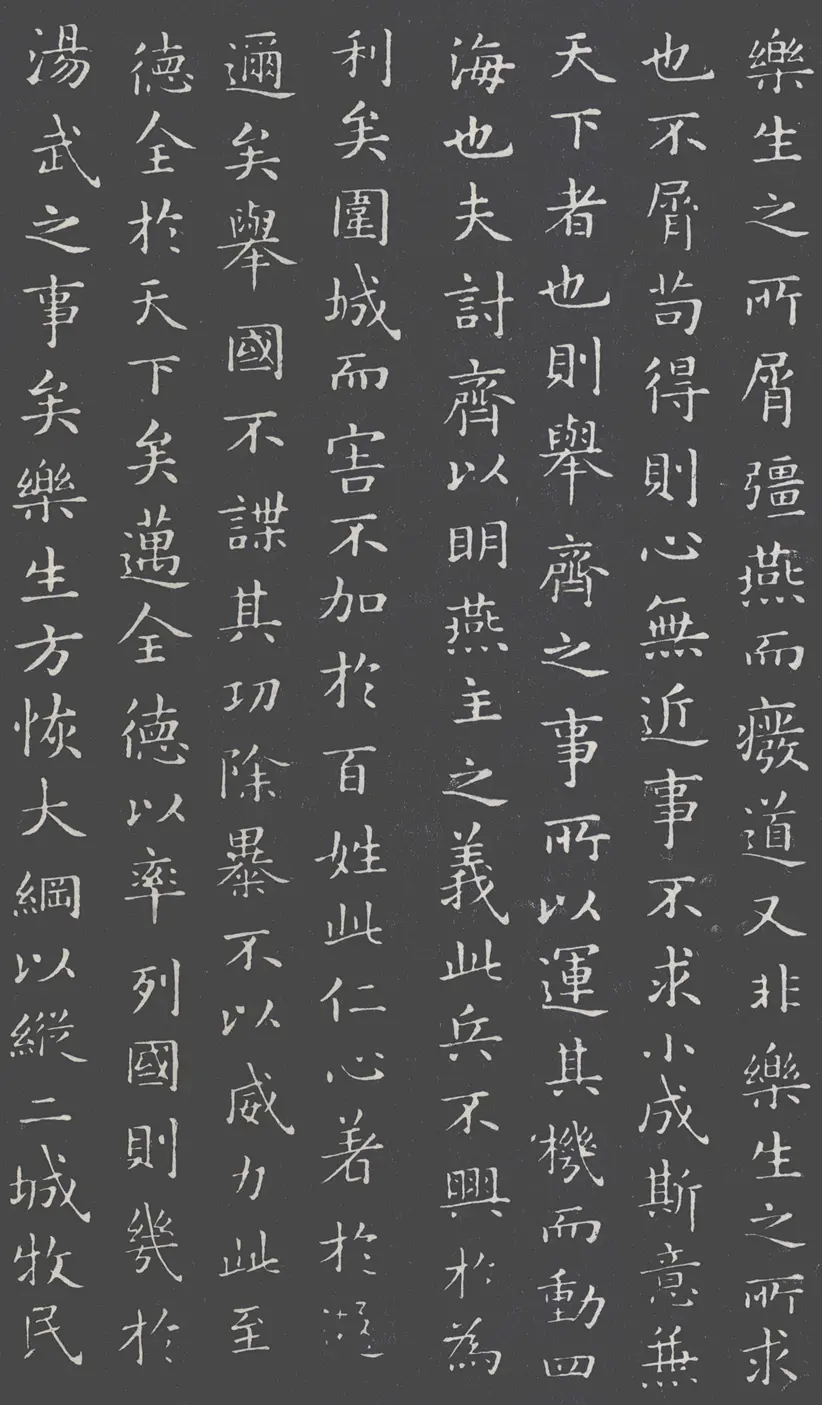 樂生之所屑彊燕而癈道又非樂生之所求
也不屑茍得則心無近事不求小成斯意兼
天下者也則舉齊之事所以運其機而動四
海也夫討齊以明燕主之義此兵不興於為
利矣圍城而害不加於百姓此仁心著於
邇矣舉國不謀其功除暴不以威力此至
德全於天下矣邁全德以率列國則幾於
湯武之事矣樂生方恢大綱以縱二城牧民